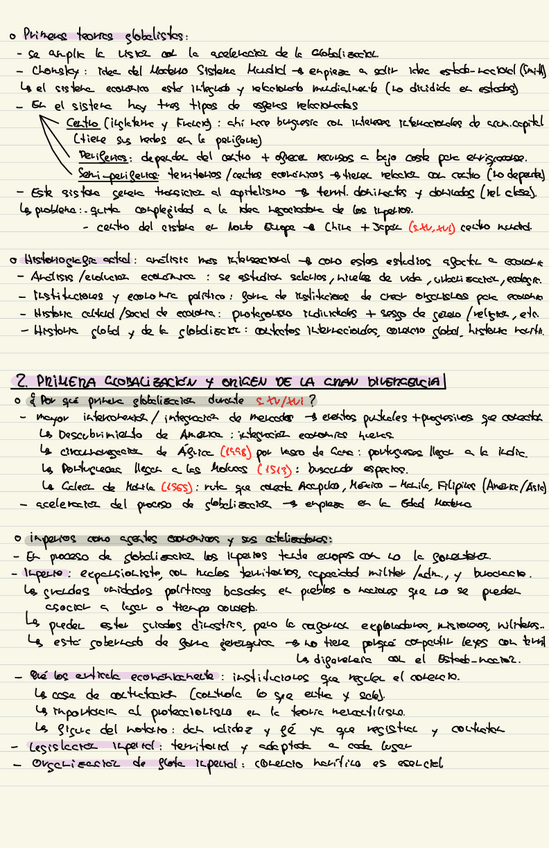 o Primeras teorías globalistas:
- se amplía la visión con la aceleración de la Globalización
- Chomsky: idea del Moderno Sistema Mundial → empieza a salir idea estado-nacional
↳ el sistema económico está integrado y relacionado mundialmente (no dividido en estados)
- En el sistema hay tres tipos de agentes relacionados
Centro (Inglaterra y Francia): ahí nace burguesía con intereses internacionales de acum. capital
(tiene sus redes en la periferia)
Periferias: dependen del centro + ofrece recursos a bajo coste para enriquecerse.
Semi-periferias: territorios/centros económicos → tienen relación con centro (no dependen)
- Este sistema genera transición al capitalismo → territ. dominantes y dominados (rel. clases).
↳ problema: quita complejidad a la idea negociadora de los imperios.
- centro del sistema en Norte Europa → China + Japón (s. XV, XVI) centro mundial
o Historiografía actual: análisis más internacional → como estos estudios aporta a economía
- Análisis/evolución económica: se estudian salarios, niveles de vida, urbanización, ecología.
- Instituciones y economía política: forma de instituciones de crear organismos para economía
- Historia cultural/social de economía: protagonismo individuales + sesgo de género/religión, etc.
- Historia global y de la globalización: contactos internacionales, comercio global, historia marít.
2. PRIMERA GLOBALIZACIÓN Y ORIGEN DE LA GRAN DIVERGENCIA
o ¿Por qué primera globalización durante s. XV/XVI?
- mayor interconexión/integración de mercados → eventos puntuales + progresivos que conectan
↳ Descubrimiento de América: integración económica nueva.
↳ circunnavegación de África (1498) por Vasco de Gama: portugueses llegan a la India.
↳ Portugueses llegan a las Molucas (1513): buscando especias.
↳ Galeón de Manila (1565): ruta que conecta Acapulco, México - Manila, Filipinas (América/Asia)
- aceleración del proceso de globalización → empieza en la Edad Moderna
o imperios como agentes económicos y sus catalizadores:
- En proceso de globalización los imperios tanto europeos con no la
- Imperio: expansionista, con nucleos territorios, capacidad militar/adm., y burocracia.
↳ grandes unidades políticas basadas en pueblos o naciones que no se pueden
asociar a lugar o tiempo concreto.
↳ pueden estar guiados dinastías, pero la conforman exploradores, misioneros, militares..
↳ está gobernado de forma jerárquica → no tiene porqué compartir leyes con territ
↳ diferencia con el Estado-nación.
- Qué los articula económicamente: instituciones que regulan el comercio.
↳ casa de contratación (controla lo que entra y sale).
↳ importancia al proteccionismo en la teoría mercantilismo.
↳ figura del notario: dan validez y fé ya que registran y contratan
- Legislación imperial: territorial y adaptada a cada lugar
- Organización de flota imperial: comercio marítimo es esencial